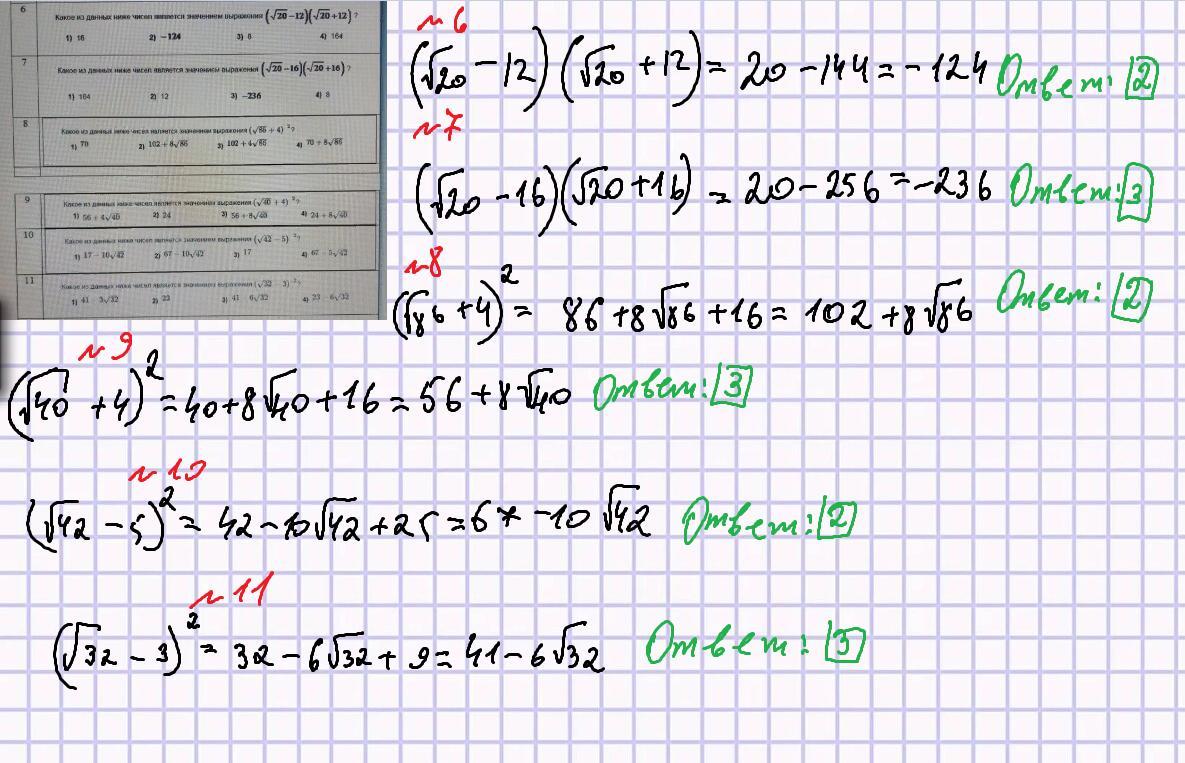 6
Какое из данных ниже чисел является значением выражения (√20−12)(√20+12)?
1) 16 2) −124 3) 8 4) 164
7
Какое из данных ниже чисел является значением выражения (√20−16)(√20+16)?
1) 164 2) 12 3) −236 4) 8
8
Какое из данных ниже чисел является значением выражения (√86 + 4)²?
1) 70 2) 102 + 8√86 3) 102 + 4√86 4) 70 + 8√86
9
Какое из данных ниже чисел является значением выражения (√40 + 4)²?
1) 56 + 4√40 2) 24 3) 56 + 8√40 4) 24 + 8√40
10
Какое из данных ниже чисел является значением выражения (√42 − 5)²?
1) 17 − 10√42 2) 67 − 10√42 3) 17 4) 67 − 5√42
11
Какое из данных ниже чисел является значением выражения (√32 − 3)²?
1) 41 − 3√32 2) 23 3) 41 − 6√32 4) 23 − 6√32
№6
(√20 − 12)(√20 + 12) = 20 − 144 = −124 Ответ: 2
№7
(√20 − 16)(√20 + 16) = 20 − 256 = −236 Ответ: 3
№8
(√86 + 4)² = 86 + 8√86 + 16 = 102 + 8√86 Ответ: 2
№9
(√40 + 4)² = 40 + 8√40 + 16 = 56 + 8√40 Ответ: 3
№10
(√42 − 5)² = 42 − 10√42 + 25 = 67 − 10√42 Ответ: 2
№11
(√32 − 3)² = 32 − 6√32 + 9 = 41 − 6√32 Ответ: 3